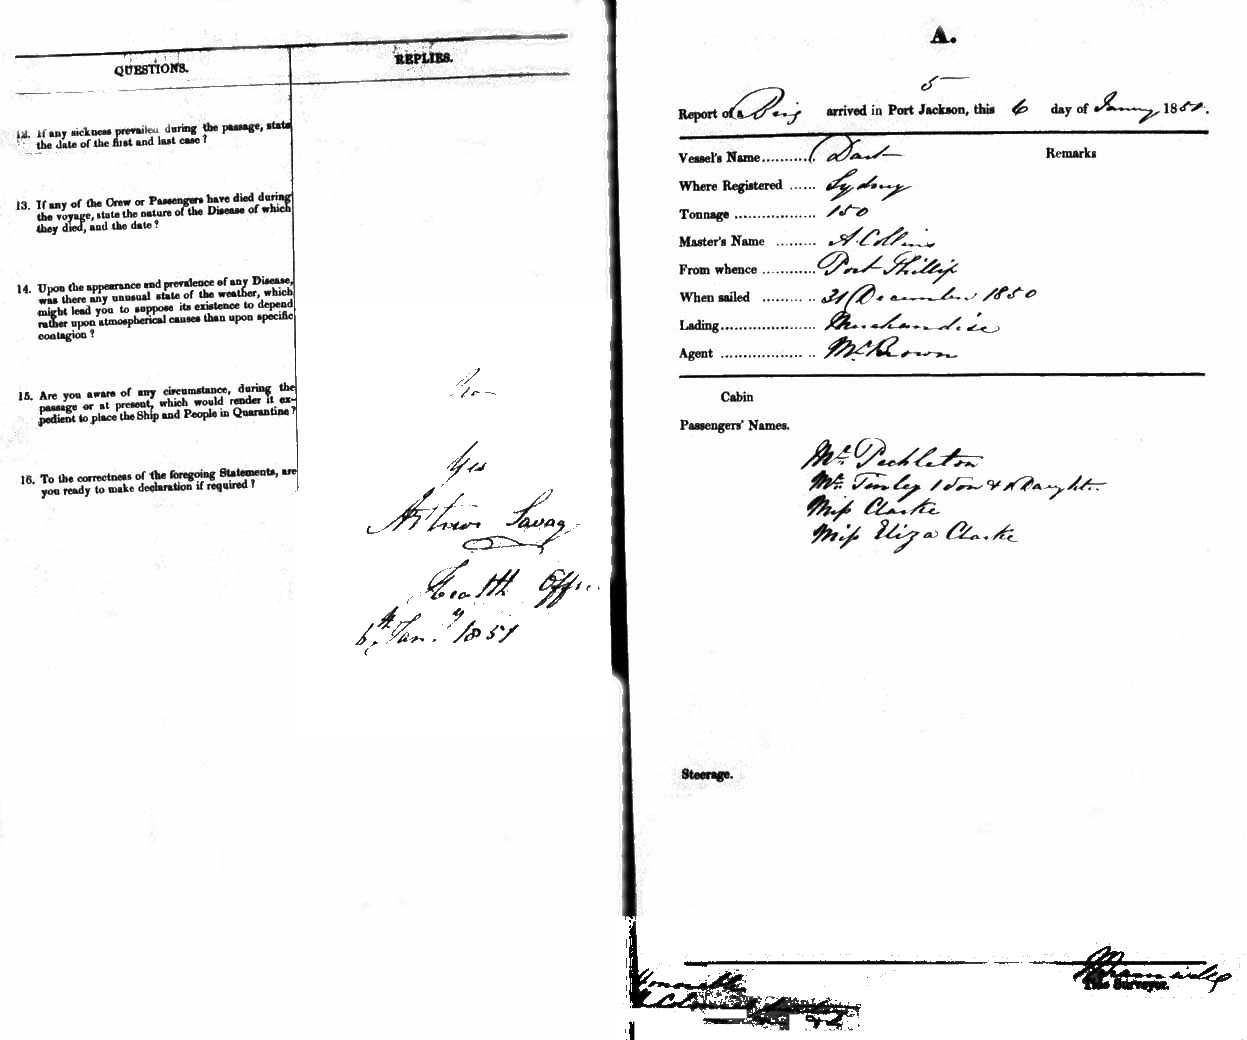 QUESTIONS.
REPLIES.
12. If any sickness prevailed during the passage, state
the date of the first and last case ?
13. If any of the Crew or Passengers have died during
the voyage, state the nature of the Disease of which
they died, and the date ?
14. Upon the appearance and prevalence of any Disease,
was there any unusual state of the weather, which
might lead you to suppose its existence to depend
rather upon atmospherical causes than upon specific
contagion ?
15. Are you aware of any circumstance, during the
passage or at present, which would render it ex-
pedient to place the Ship and People in Quarantine ?
No
16. To the correctness of the foregoing Statements, are
you ready to make declaration if required ?
Yes
Arthur Savag
Health Offi
6th Jany 1851
A.
5
Report of a Brig arrived in Port Jackson, this 6 day of January 1851.
Vessel's Name .......... Dart
Remarks
Where Registered ...... Sydney
Tonnage .................. 150
Master's Name ......... A. Collins
From whence ............ Port Phillip
When sailed ......... .. 31 December 1850
Lading ..................... Merchandise
Agent .................. .. Mr Brown
Cabin
Passengers' Names.
Mr. Peckleton
Mrs Tinley 1 Son & Daught.
Miss Clarke
Miss Eliza Clarke
Steerage.
Honorable
Colonial
Tide Surveyor.